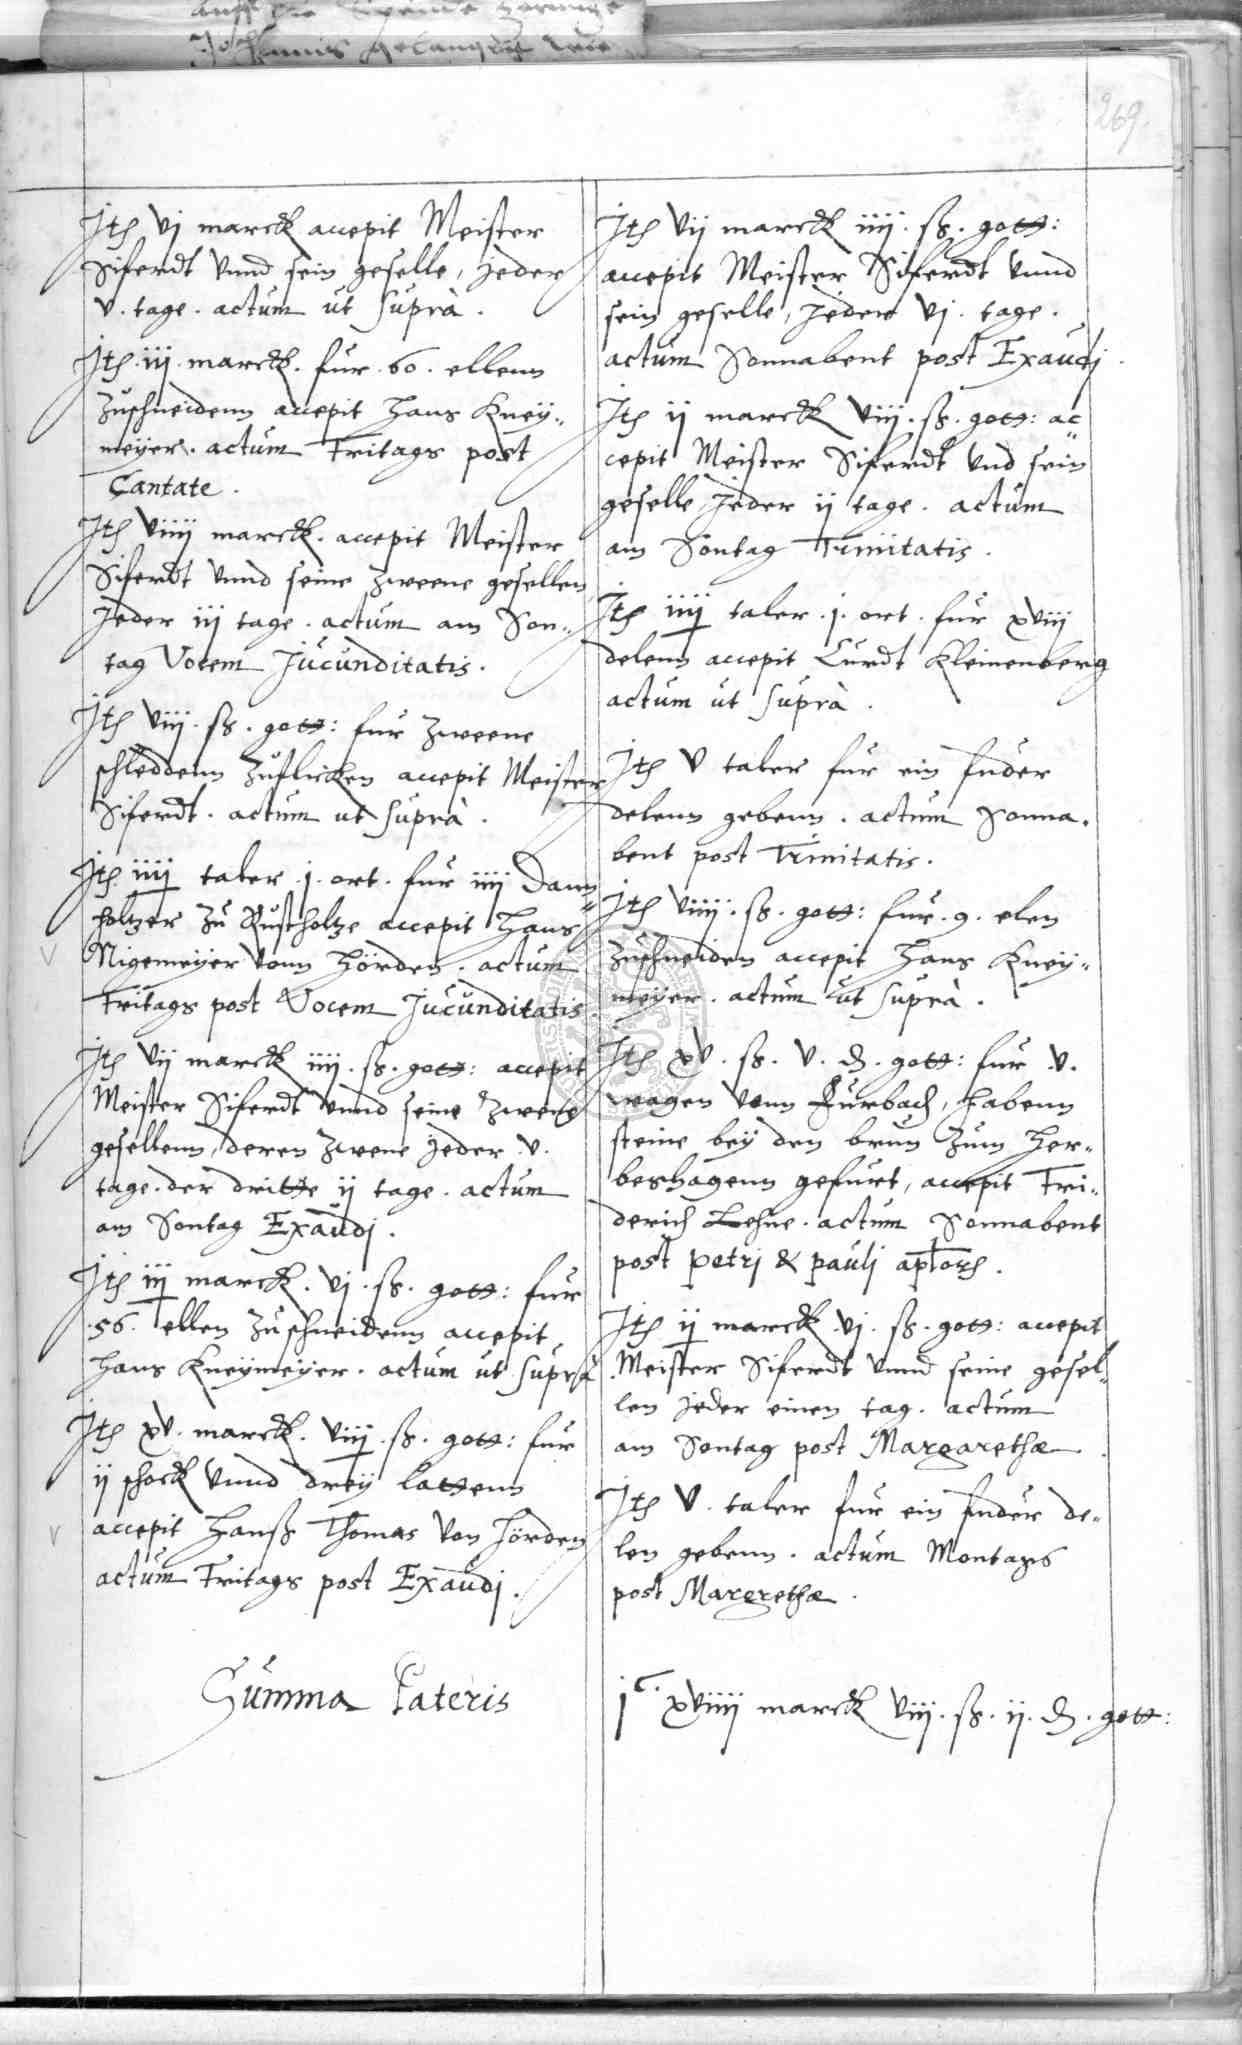 269.
Ith vj marckh accepit Meister
Siferdt vnnd sein geselle, jeder
v. tage. actum ut suprà.
Ith. iij. marckh. fur. 60. ellenn
zuschneidenn accepit Hans Kney„
meyer. actum Fritags post
Cantate.
Ith viiij marckh. accepit Meister
Siferdt vnnd seine zweene gesellen
Jeder iij tage. actum am Son„
tag Vocem Jucunditatis.
Ith viij. ß. gott: fur zweene
schleddenn zuflicken accepit Meister
Siferdt. actum ut suprà.
Ith. iiij taler j. ort. fur iiij Dann„
holtzer zu Rustholtze accepit Hans
Nigemeyer vonn Hörden. actum
Fritags post Vocem Jucunditatis.
Ith vij marckh iiij. ß. gott: accepit
Meister Siferdt vnnd seine zwene
gesellenn, deren zwene jeder v.
tage. der dritte ij tage. actum
am Sontag Exaudj.
Ith iij marckh. vj. ß. gott: fur
.56. ellen zuschneidenn accepit
Hans Kneymeyer. actum ut suprà
Ith xv. marckh. viij. ß. gott: fur
ij schock vnnd drey lattenn
accepit Hanß Thomas von Hörden
actum Fritags post Exaudj.
Summa Lateris
Ith vij marckh iiij. ß. gott:
accepit Meister Siferdt vnnd
sein geselle, Jeder vj. tage.
actum Sonnabent post Exaudj.
Ith ij marckh viij. ß. gott: ac„
cepit Meister Siferdt vnd sein
geselle Jeder ij tage. actum
am Sontag Trinitatis.
Ith iiij taler. j. ort. fur xviij
delenn accepit Curdt Kleinenberg
actum ut suprà.
Ith v taler fur ein fuder
delenn gebenn. actum Sonna„
bent post Trinitatis.
Ith viiij. ß. gott: fur. 9. elen
zuschneiden accepit Hans Kney„
meyer. actum ut suprà.
Ith xv. ß. v. d. gott: fur v.
wagen vonn Furbach, habenn
steine bey den brun zum Her„
beshagenn gefurt, accepit Fri„
derich Lehne. actum Sonnabent
post petrj & paulj aplorh.
Ith ij marckh vj. ß. gott: accepit
Meister Siferdt vnnd seine gesel„
len jeder einen tag. actum
am Sontag post Margarethæ.
Ith v. taler fur ein fuder de„
len gebenn. actum Montags
post Margrethæ.
jC. xviiij marckh viij. ß. ij. d. gott: